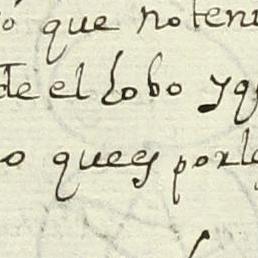 ó que no teni
de el Lobo y q
o que es por le